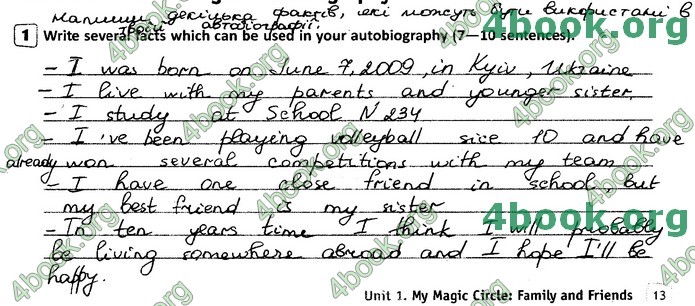 напиши декілька фактів, які можуть бути використані в
своїй автобіографії.
1 Write several facts which can be used in your autobiography (7—10 sentences).
- I was born on June 7, 2009, in Kyiv, Ukraine
- I live with my parents and younger sister.
- I study at School N 234
- I've been playing volleyball sice 10 and have
already won several competitions with my team
- I have one close friend in school, but
my best friend is my sister
- In ten years time I think I will probably
be living somewhere abroad and I hope I'll be
happy.
Unit 1. My Magic Circle: Family and Friends 13
4book.org